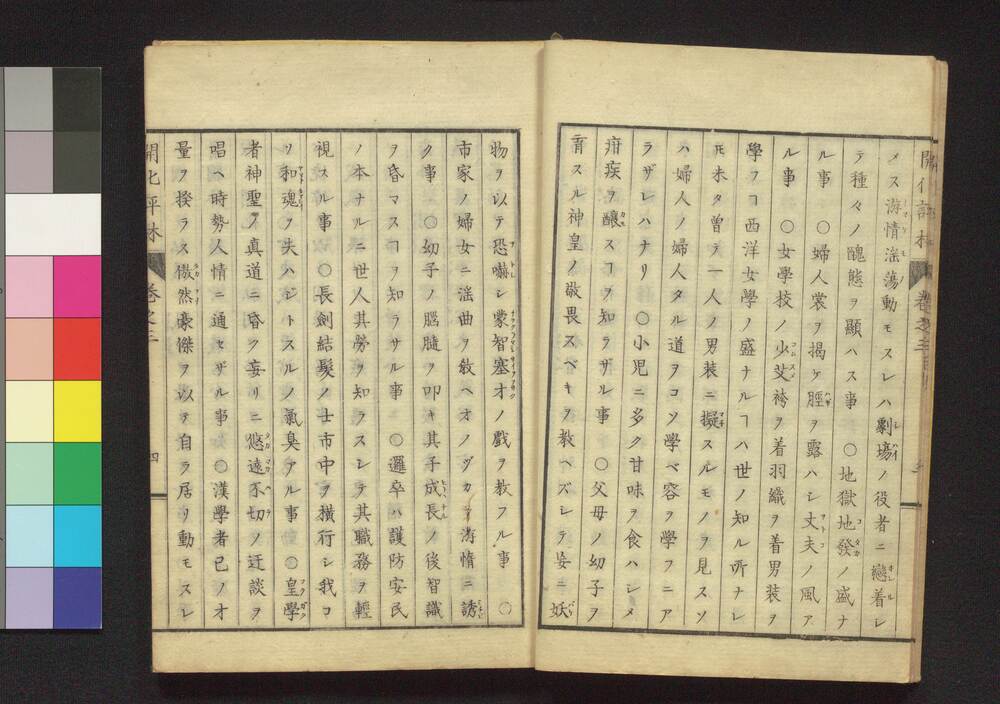 メス游惰淫蕩動モスレハ劇場ノ役者ニ戀着シ
テ種々ノ醜態ヲ顯ハス事　〇地獄地發ノ盛ナ
ル事　〇婦人裳ヲ揭ケ脛ヲ露ハシ丈夫ノ風ア
ル事　〇女學校ノ少女袴ヲ着羽織ヲ着男裝ヲ
學フヿ西洋女學ノ盛ナルヿハ世ノ知ル所ナレ
𪜈未タ曾テ一人ノ男裝ニ擬スルモノヲ見スソ
ハ婦人ノ婦人タル道ヲコソ學ベ容ヲ學フニア
ラザレハナリ〇小児ニ多ク甘味ヲ食ハシメ
疳疾ヲ釀スヿヲ知ラザル事　〇父母ノ幼子ヲ
育スル神皇ノ敬畏スベキヲ教ヘズシテ妄ニ妖
物ヲ以テ恐嚇シ蒙智塞才ノ戲ヲ教フル事　〇
市家ノ婦女ニ淫曲ヲ敎ヘオノヅカラ游惰ニ誘
ク事　〇幼子ノ腦髓ヲ叩キ其子成長ノ後智識
ヲ昏マスヿヲ知ラサル事　〇邏卒ハ護防安民
ノ本ナルニ世人其勞ヲ知ラスシテ其職務ヲ輕
視スル事　〇長劍結髮ノ士市中ヲ橫行シ我コ
ソ和魂ヲ失ハジトスルノ氣臭アル事　〇皇學
者神聖ノ真道ニ昏ク妄リニ悠遠不切ノ迂談ヲ
唱ヘ時勢人情ニ通セザル事　〇漢學者己ノオ
量ヲ揆ラス傲然豪傑ヲ以テ自ラ居リ動モスレ
開化評林　卷之三　四